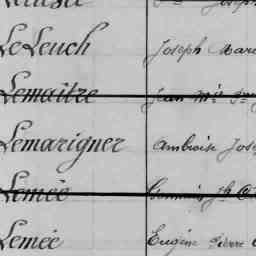 Le Leuch Joseph Marie
Lemaitre Jean Mie
Lemarigner Ambroise Jose
Lemée
Lemée Eugène Pierre